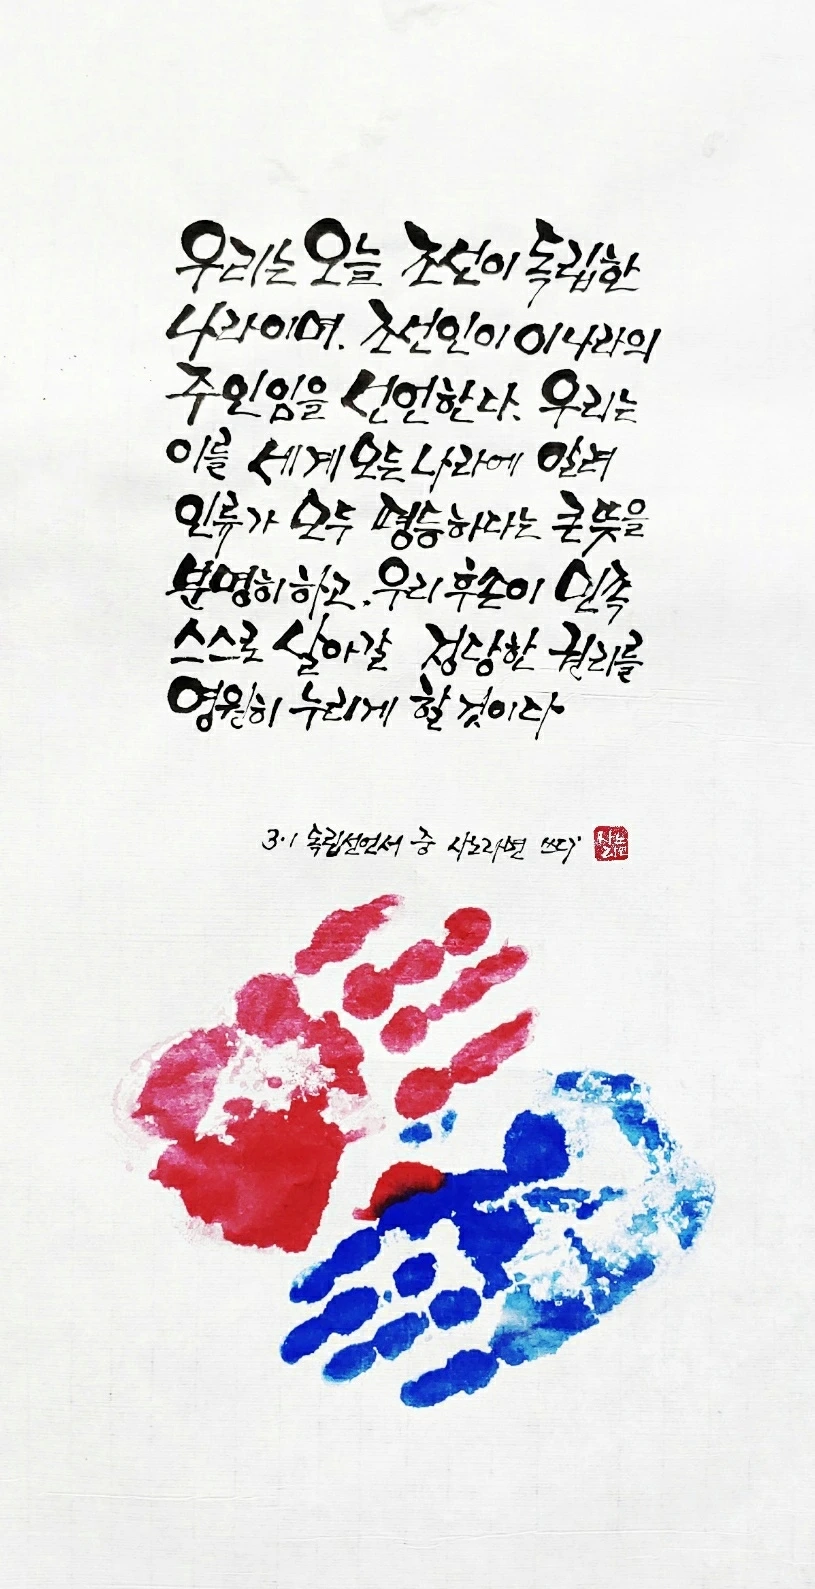 우리는 오늘 조선이 독립한
나라이며, 조선인이 이 나라의
주인임을 선언한다. 우리는
이를 세계 모든 나라에 알려
인류가 모두 평등하다는 큰 뜻을
분명히 하고, 우리 후손이 민족
스스로 살아갈 정당한 권리를
영원히 누리게 할 것이다
3·1 독립선언서 중 사노라면 쓰다
사노라면